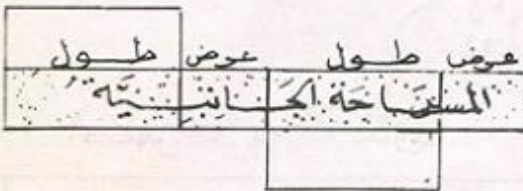 عرض طول عرض طول
المساحة الجَانبيَّة